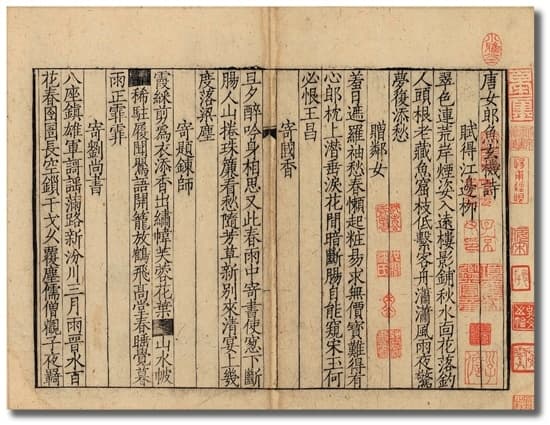 唐女郎魚玄機詩
賦得江邊柳
翠色連荒岸煙姿入遠樓影鋪秋水面花落釣
人頭根老藏魚窟枝低繫客舟瀟瀟風雨夜驚
夢復添愁
贈鄰女
羞日遮羅袖愁春懶起粧易求無價寶難得有
心郎枕上潛垂淚花間暗斷腸自能窺宋玉何
必恨王昌
寄國香
旦夕醉吟身相思又此春雨中寄書使窓下斷
腸人山捲珠簾看愁隨芳草新別來清宴上幾
度落梁塵
寄題鍊師
霞綵剪爲衣添香出繡幃芙蓉花葉 山水帔
稀駐履聞鶯語開籠放鶴飛高堂春睡覺暮
雨正霏霏
寄劉尚書
八座鎮雄軍謌謠滿路新汾川三月雨晉水百
花春囹圄長空鎖干戈久覆塵儒僧觀子夜羈